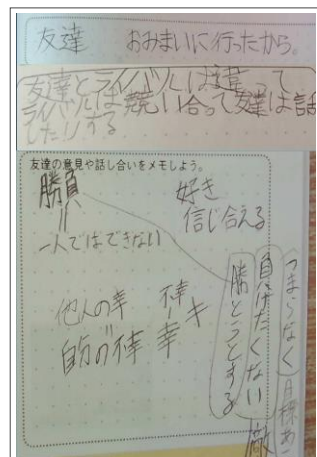 友達 おみまいに行ったから。
友達とライバルは違って
ライバルは競い合って友達は話
したりする
友達の意見や話し合いをメモしよう。
勝負
||
一人ではできない
好き
信じ合える
他人の幸
||
自分の不幸
不幸
幸
キ
負けたくない
勝とうとする
敵
つまらなく
目標